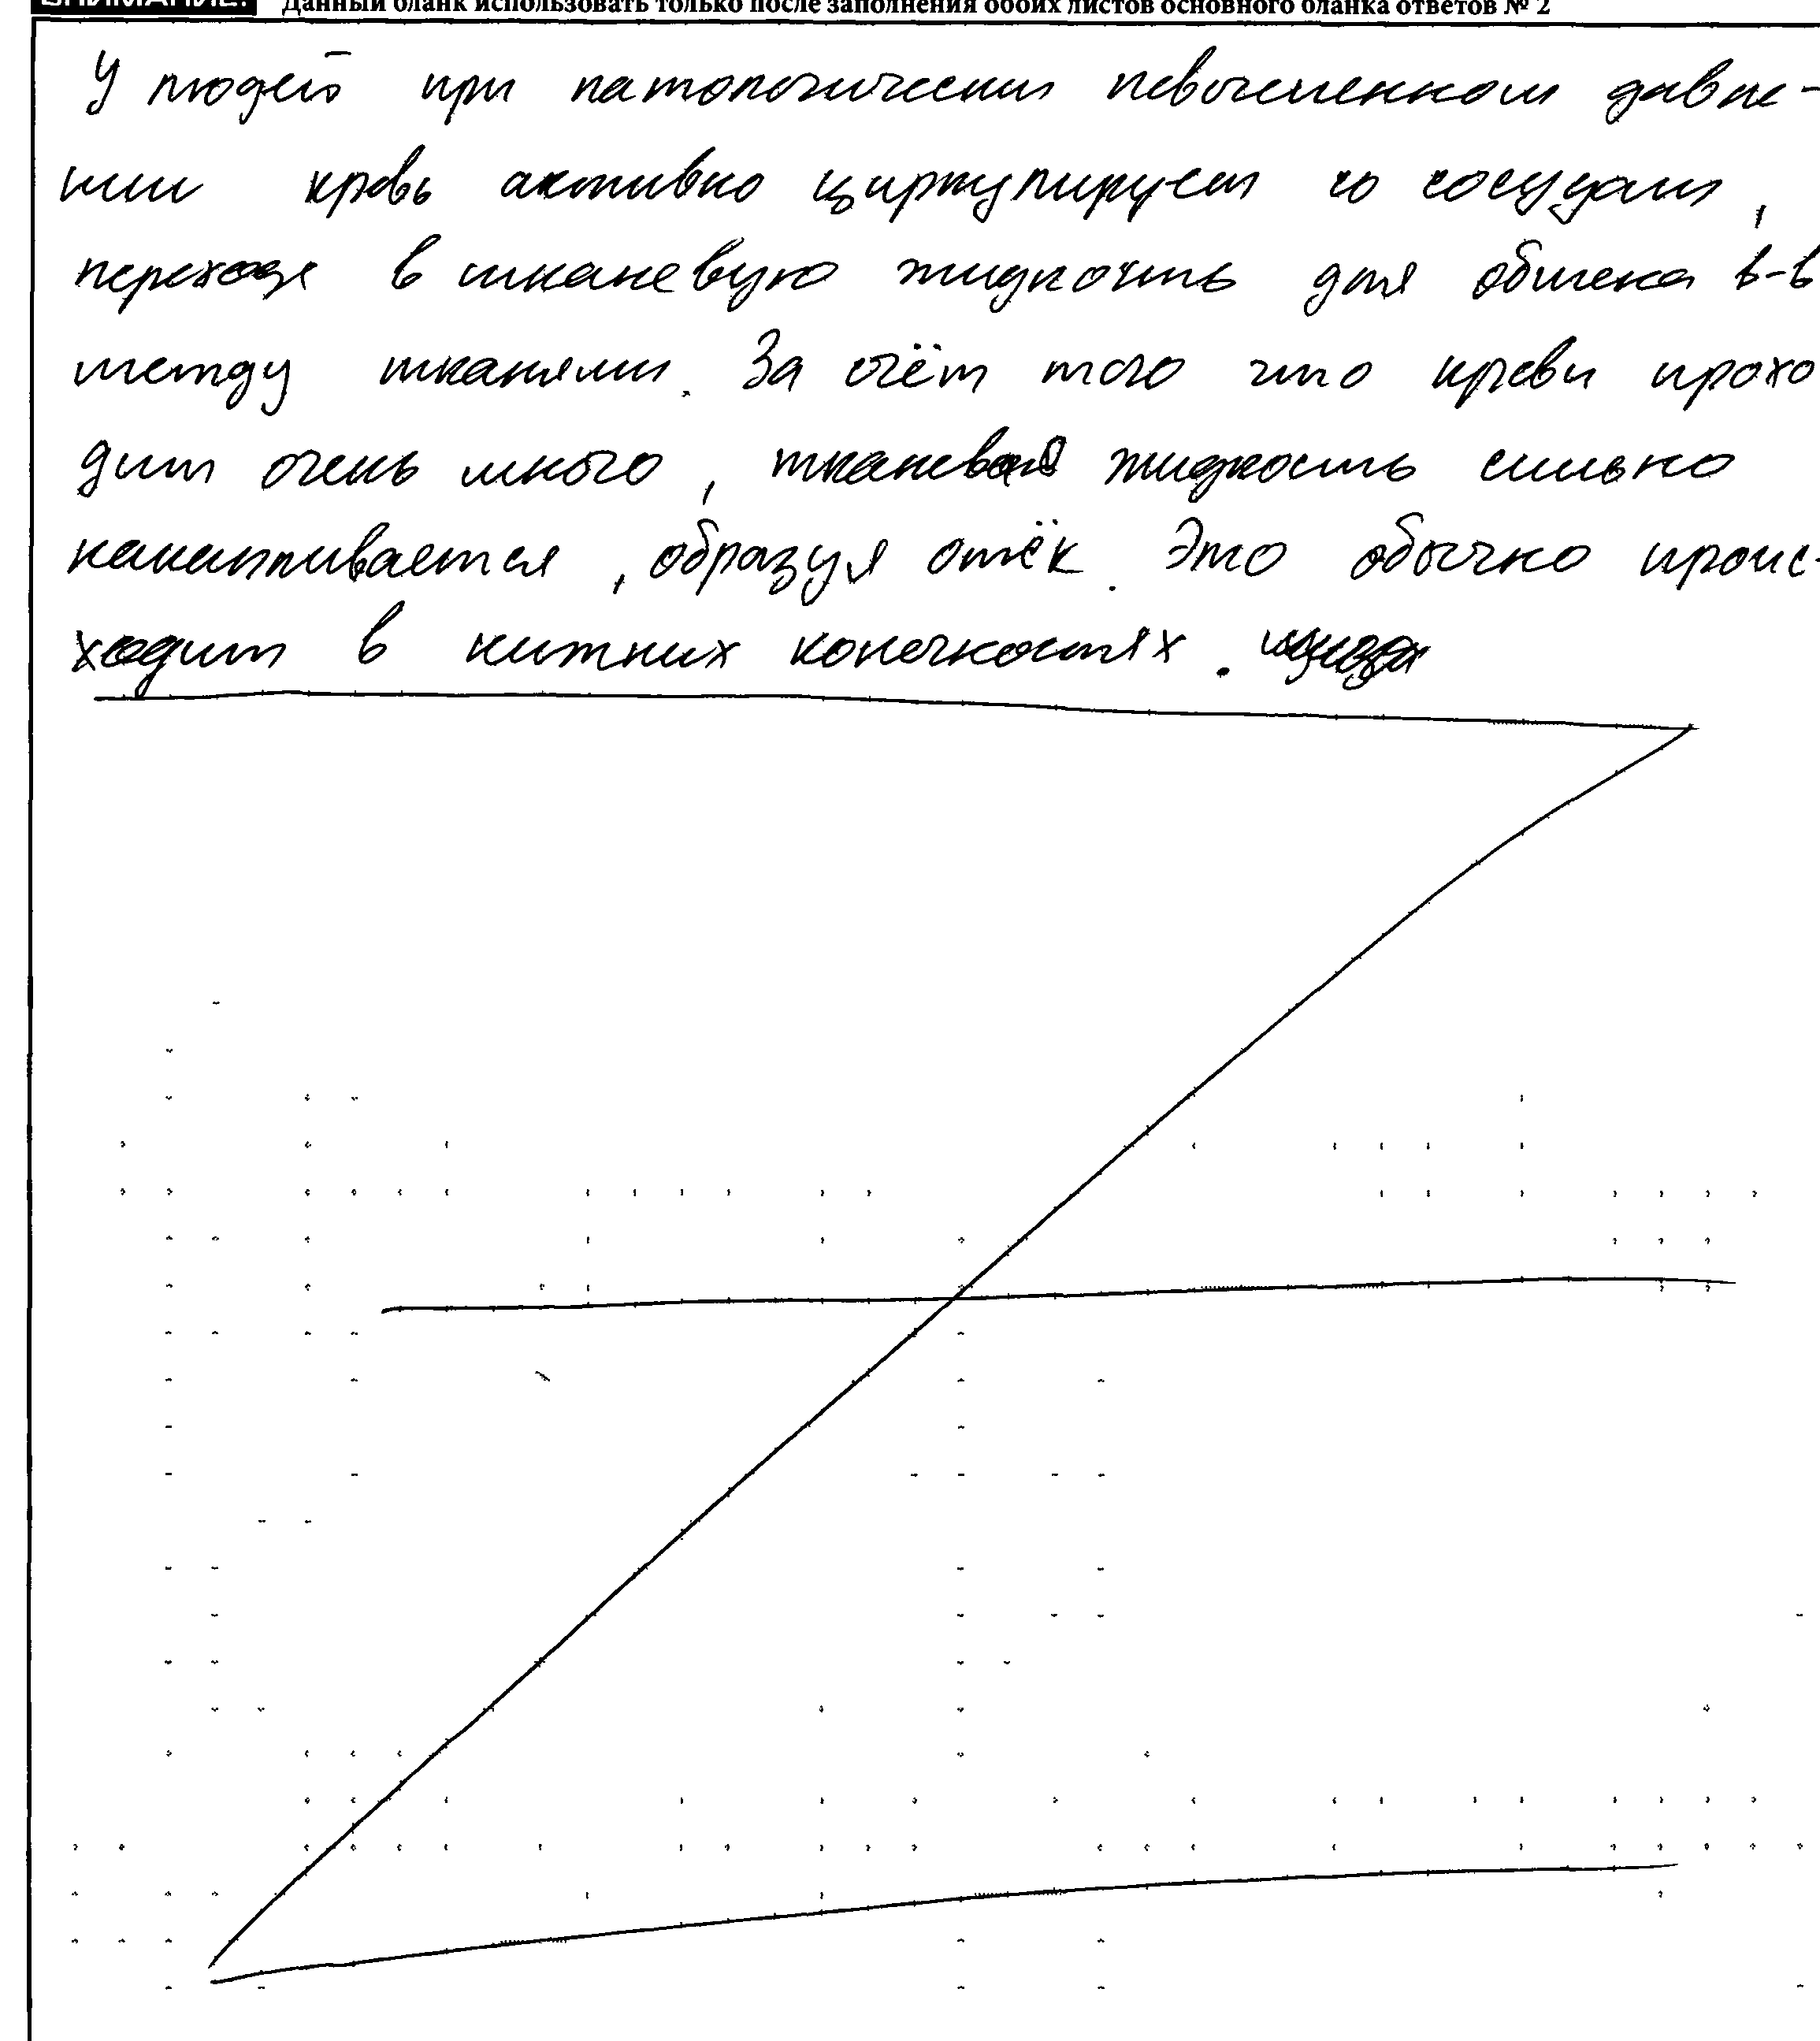 ВНИМАНИЕ! Данный бланк использовать только после заполнения обоих листов основного бланка ответов № 2
У людей при патологически повышенном давле-
нии кровь активно циркулирует по сосудам,
переходя в тканевую жидкость для обмена в-в
между тканями. За счёт того что крови прохо
дит очень много, тканевая жидкость сильно
накапливается, образуя отёк. Это обычно проис-
ходит в нижних конечностях.